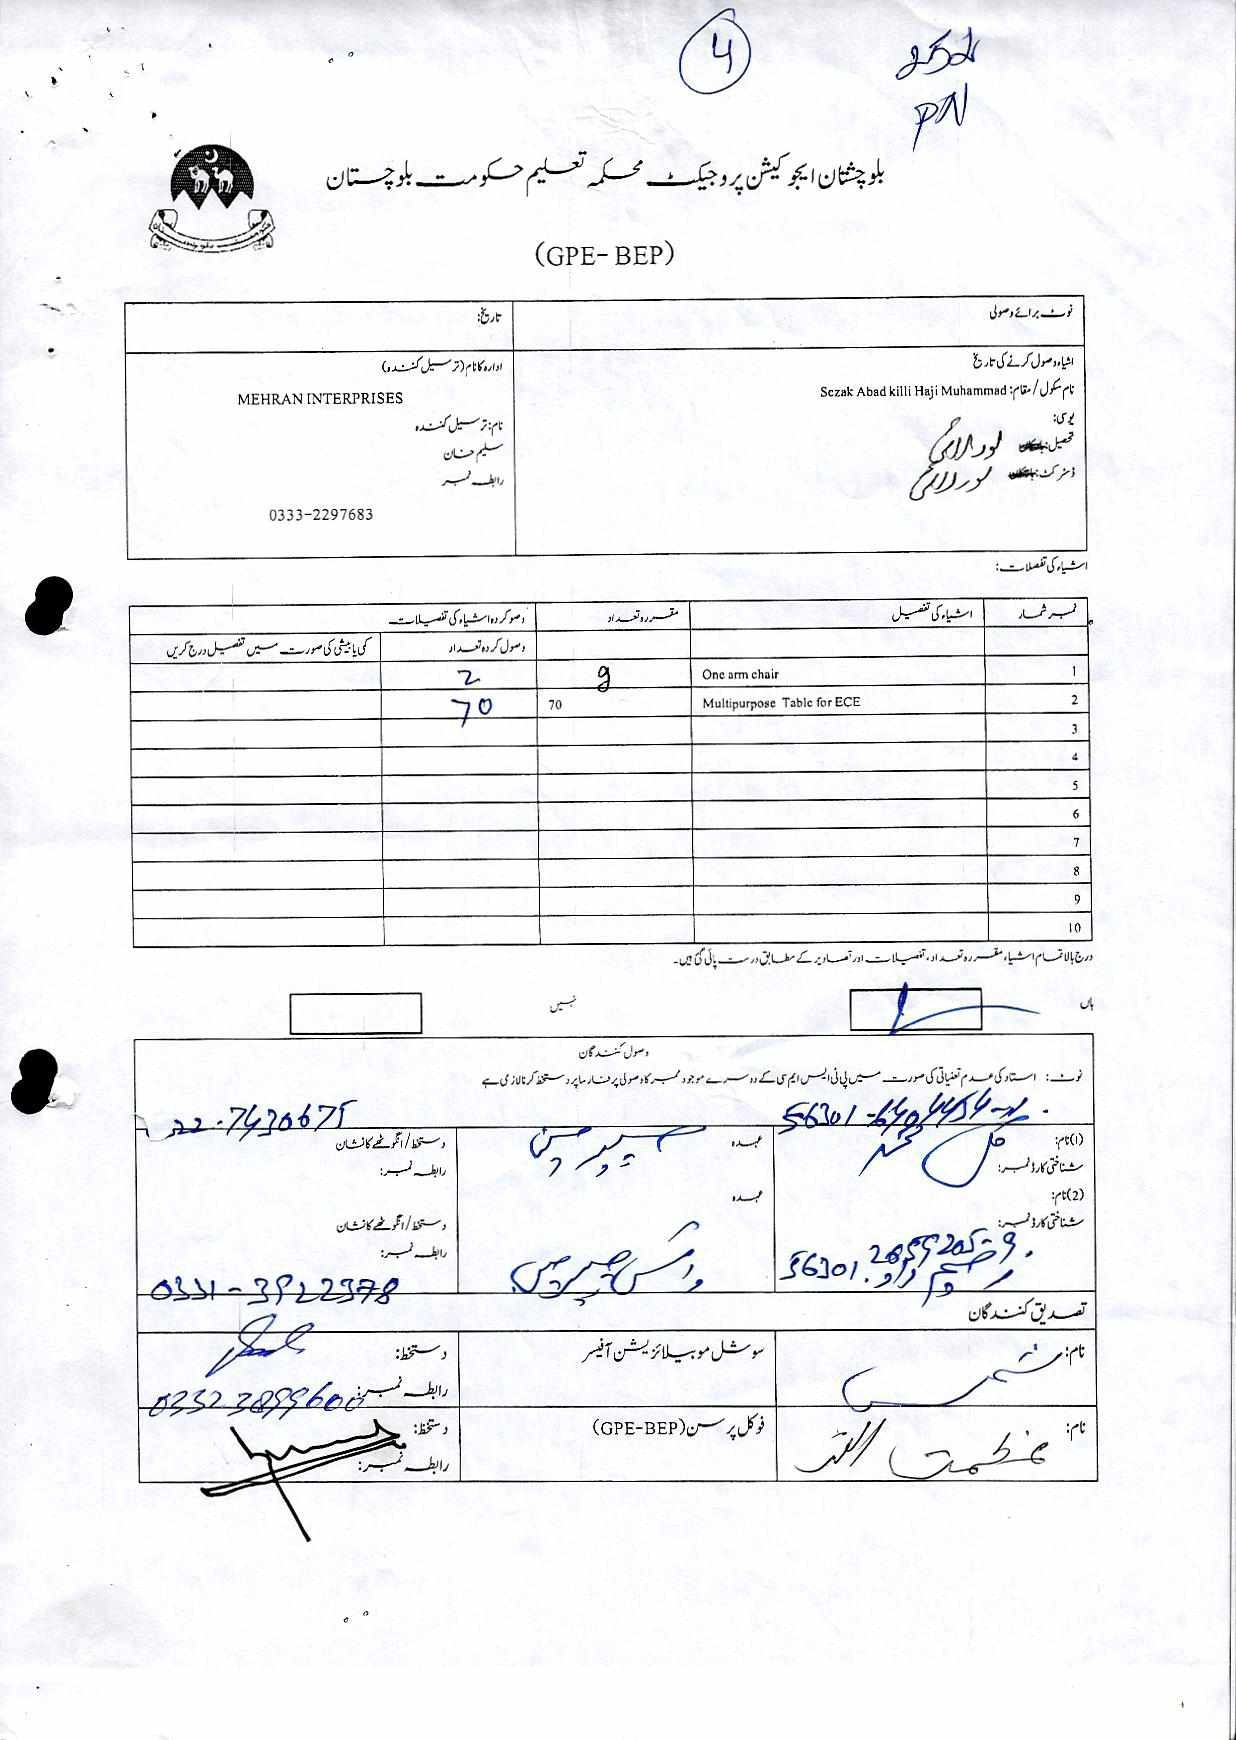 4
PN
بلوچستان ایجوکیشن پروجیکٹ محکمہ تعلیم حکومت بلوچستان
(GPE- BEP)
نوٹ برائے وصولی
تاریخ:
اشیاء وصول کرنے کی تاریخ
نام سکول / مقام: Sczak Abad killi Haji Muhammad
یو سی:
تحصیل: لورالائی
ڈسٹرکٹ: لورالائی
ادارہ کا نام (ترسیل کنندہ)
MEHRAN INTERPRISES
نام: ترسیل کنندہ
سلیم خان
رابطہ نمبر
0333-2297683
اشیاء کی تفصلات:
نمبر شمار اشیاء کی تفصیل مقررہ تعداد وصو کردہ اشیاء کی تفصیلات
وصول کردہ تعداد کمی یا بیشی کی صورت میں تفصیل درج کریں
1 One arm chair 9 2
2 Multipurpose Table for ECE 70 70
3
4
5
6
7
8
9
10
درج بالا تمام اشیاء مقررہ تعداد، تفصیلات اور تصاویر کے مطابق درست پائی گئی ہیں۔
ہاں نہیں
وصول کنندگان
نوٹ: استاد کی عدم تعنیاتی کی صورت میں پی ٹی ایس ایم سی کے دوسرے موجود ممبر کا وصولی پر فارما پر دستخط کرنا لازمی ہے
22-7430675
(1) نام: گل محمد عہدہ چیئرمین دستخط / انگوٹھے کا نشان
شناختی کارڈ نمبر: رابطہ نمبر:
(2) نام: عہدہ دستخط / انگوٹھے کا نشان
شناختی کارڈ نمبر: 56301-2859205-9 وائس چیئرمین رابطہ نمبر:
0331-3922378
تصدیق کنندگان
نام: شمس سوشل موبیلائزیشن آفیسر دستخط:
رابطہ نمبر: 03323899600
نام: عظمت اللہ فوکل پرسن (GPE-BEP) دستخط:
رابطہ نمبر: